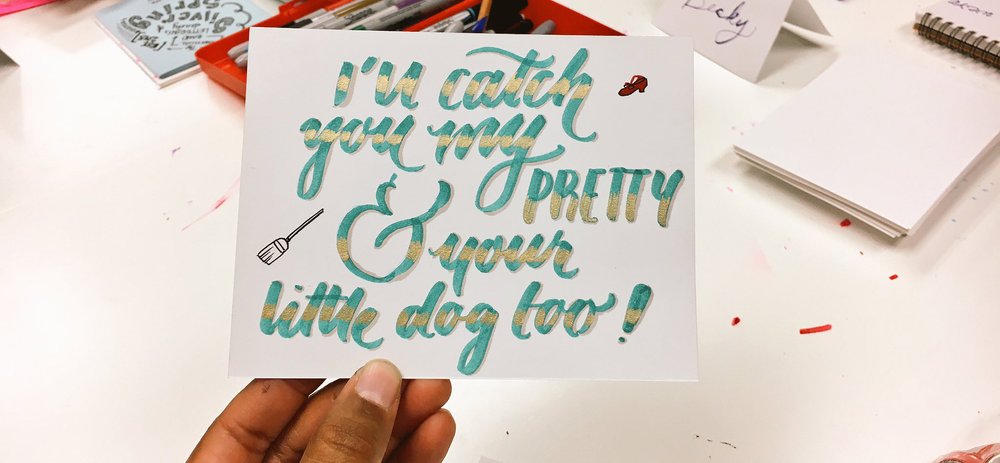 I'll catch
you my
PRETTY
& your
little dog too!
Becky